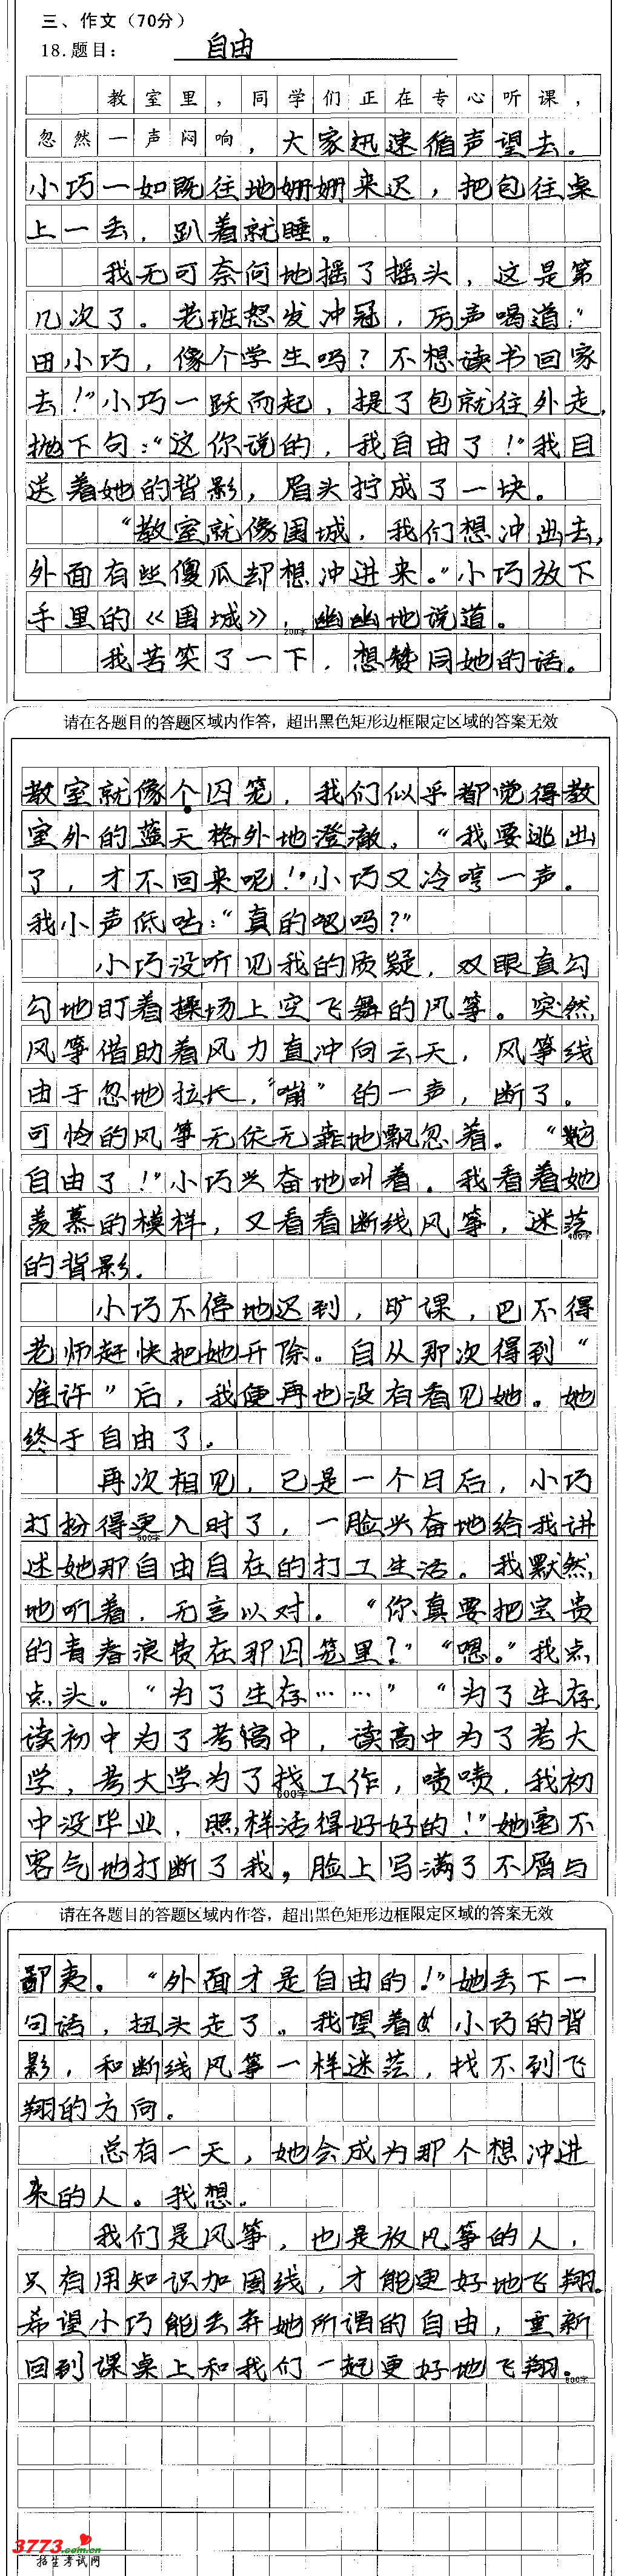 三、作文（70分）
18.题目： 自由
教室里，同学们正在专心听课，
忽然一声闷响，大家迅速循声望去。
小巧一如既往地姗姗来迟，把包往桌
上一丢，趴着就睡。
我无可奈何地摇了摇头，这是第
几次了。老班怒发冲冠，厉声喝道："
田小巧，像个学生吗？不想读书回家
去！"小巧一跃而起，提了包就往外走，
抛下句："这你说的，我自由了！"我目
送着她的背影，眉头拧成了一块。
"教室就像围城，我们想冲出去，
外面有些傻瓜却想冲进来。"小巧放下
手里的《围城》，幽幽地说道。
200字
我苦笑了一下，想赞同她的话。
请在各题目的答题区域内作答，超出黑色矩形边框限定区域的答案无效
教室就像个囚笼，我们似乎都觉得教
室外的蓝天格外地澄澈。"我要逃出
了，才不回来呢！"小巧又冷哼一声。
我小声低咕："真的吧吗？"
小巧没听见我的质疑，双眼直勾
勾地盯着操场上空飞舞的风筝。突然，
风筝借助着风力直冲向云天，风筝线
由于忽地拉长，"嘣"的一声，断了。
可怜的风筝无依无靠地飘忽着。"它
自由了！"小巧兴奋地叫着。我看着她
羡慕的模样，又看看断线风筝，迷茫
400字
的背影。
小巧不停地迟到，旷课，巴不得
老师赶快把她开除。自从那次得到"
准许"后，我便再也没有看见她。她
终于自由了。
再次相见，已是一个月后，小巧
打扮得更入时了，一脸兴奋地给我讲
500字
述她那自由自在的打工生活。我默然
地听着，无言以对。"你真要把宝贵
的青春浪费在那囚笼里？""嗯。"我点
点头。"为了生存……""为了生存，
读初中为了考高中，读高中为了考大
学，考大学为了找工作，啧啧，我初
600字
中没毕业，照样活得好好的！"她毫不
客气地打断了我，脸上写满了不屑与
请在各题目的答题区域内作答，超出黑色矩形边框限定区域的答案无效
鄙夷。"外面才是自由的！"她丢下一
句话，扭头走了。我望着小巧的背
影，和断线风筝一样迷茫，找不到飞
翔的方向。
总有一天，她会成为那个想冲进
来的人。我想。
我们是风筝，也是放风筝的人，
只有用知识加固线，才能更好地飞翔。
希望小巧能丢弃她所谓的自由，重新
回到课桌上和我们一起更好地飞翔。
800字
3773.com.cn
招生考试网